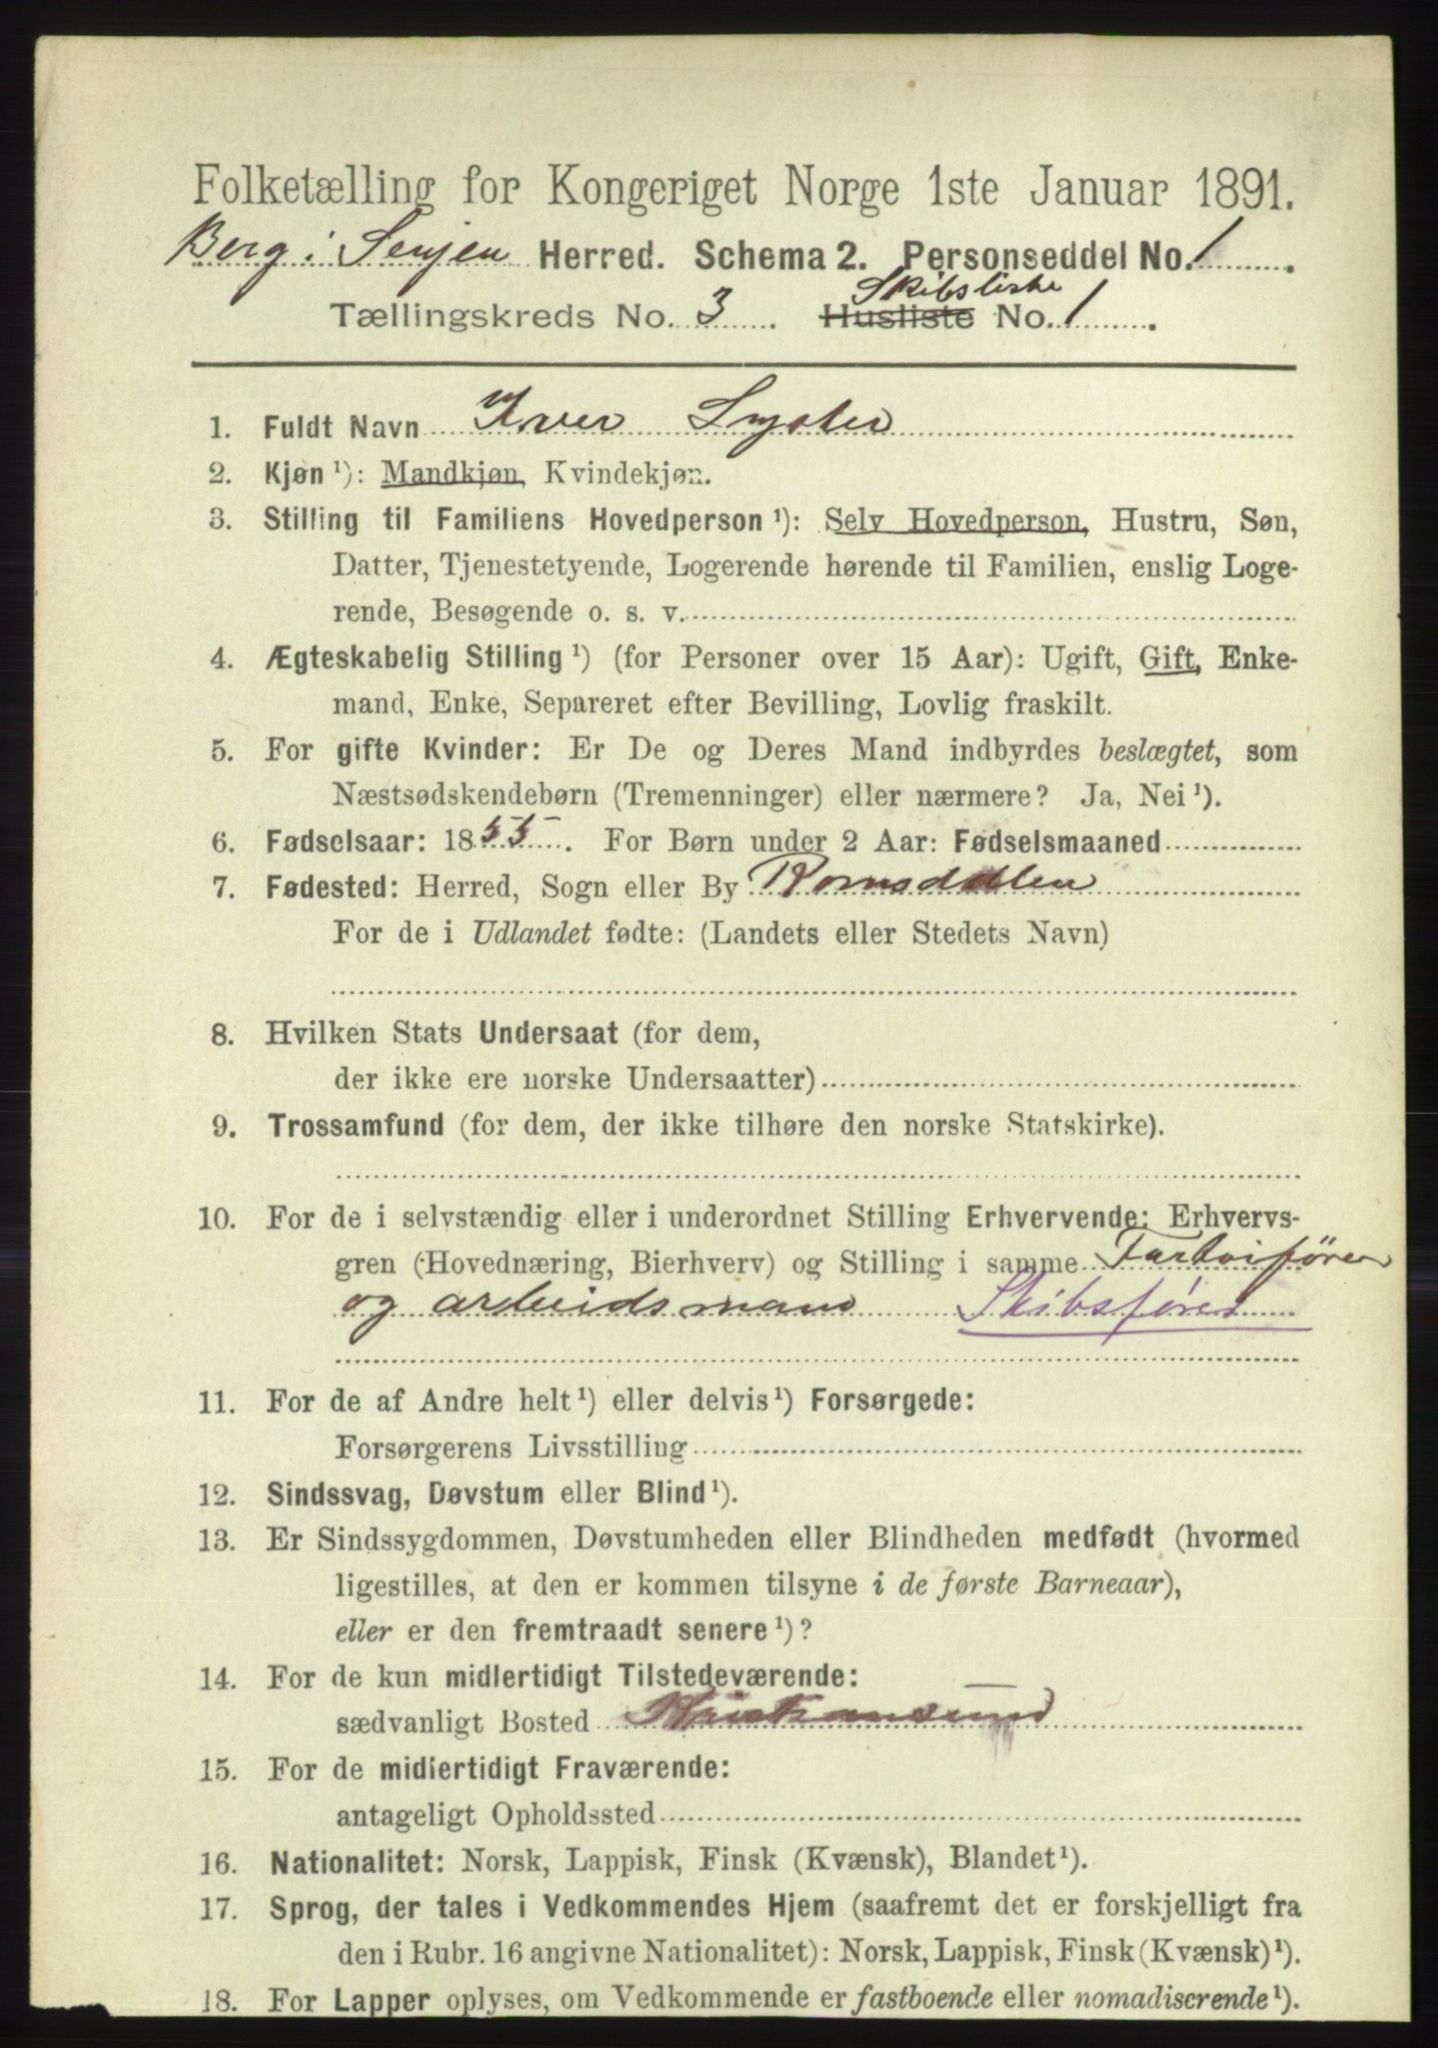 Folketælling for Kongeriget Norge 1ste Januar 1891.
Berg i Senjen Herred. Schema 2. Personseddel No. 1.
Skibsliste
Tællingskreds No. 3. Husliste No. 1.
1. Fuldt Navn Iver Lyster
2. Kjøn ¹): Mandkjøn, Kvindekjøn.
3. Stilling til Familiens Hovedperson ¹): Selv Hovedperson, Hustru, Søn,
Datter, Tjenestetyende, Logerende hørende til Familien, enslig Loge-
rende, Besøgende o. s. v.
4. Ægteskabelig Stilling ¹) (for Personer over 15 Aar): Ugift, Gift, Enke-
mand, Enke, Separeret efter Bevilling, Lovlig fraskilt.
5. For gifte Kvinder: Er De og Deres Mand indbyrdes beslægtet, som
Næstsødskendebørn (Tremenninger) eller nærmere? Ja, Nei ¹).
6. Fødselsaar: 1855. For Børn under 2 Aar: Fødselsmaaned
7. Fødested: Herred, Sogn eller By Romsdalen
For de i Udlandet fødte: (Landets eller Stedets Navn)
8. Hvilken Stats Undersaat (for dem,
der ikke ere norske Undersaatter)
9. Trossamfund (for dem, der ikke tilhøre den norske Statskirke).
10. For de i selvstændig eller i underordnet Stilling Erhvervende: Erhvervs-
gren (Hovednæring, Bierhverv) og Stilling i samme Fartøifører
og arbeidsmand Skibsfører
11. For de af Andre helt ¹) eller delvis ¹) Forsørgede:
Forsørgerens Livsstilling
12. Sindssvag, Døvstum eller Blind ¹).
13. Er Sindssygdommen, Døvstumheden eller Blindheden medfødt (hvormed
ligestilles, at den er kommen tilsyne i de første Barneaar),
eller er den fremtraadt senere ¹)?
14. For de kun midlertidigt Tilstedeværende:
sædvanligt Bosted Kristiansund
15. For de midlertidigt Fraværende:
antageligt Opholdssted
16. Nationalitet: Norsk, Lappisk, Finsk (Kvænsk), Blandet ¹).
17. Sprog, der tales i Vedkommendes Hjem (saafremt det er forskjelligt fra
den i Rubr. 16 angivne Nationalitet): Norsk, Lappisk, Finsk (Kvænsk) ¹).
18. For Lapper oplyses, om Vedkommende er fastboende eller nomadiserende ¹).